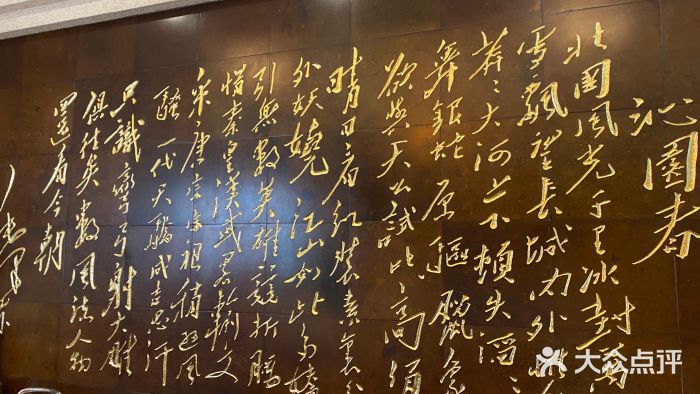 沁园春
北国风光千里冰封万
雪飘望长城内外惟
莽莽大河上下顿失滔
舞银蛇原驰腊象
欲与天公试比高须
晴日看红装素裹分
外妖娆江山如此多娇
引无数英雄竞折腰
惜秦皇汉武略输文
采唐宗宋祖稍逊风
骚一代天骄成吉思汗
只识弯弓射大雕
俱往矣数风流人物
还看今朝
毛泽东
大众点评